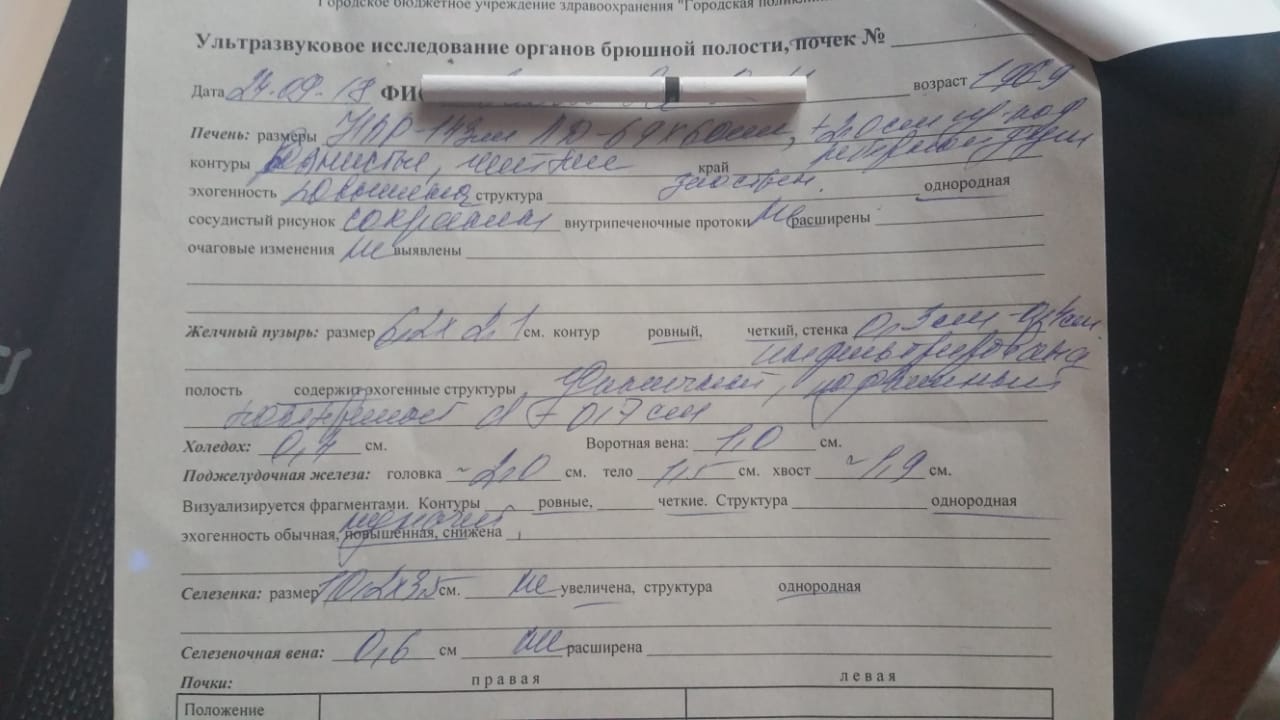 Городское бюджетное учреждение здравоохранения "Городская
Ультразвуковое исследование органов брюшной полости, почек №
Дата 24.09.18 ФИО возраст 1969
Печень: размеры ЛД-69х60мм, +2,0см из-под
реберной дуги
контуры четкие край
заострен.
эхогенность повышена структура однородная
сосудистый рисунок сохранен внутрипеченочные протоки не расширены
очаговые изменения не выявлены
Желчный пузырь: размер 6,2х2,1 см. контур ровный, четкий, стенка 0,3см-0,4см
полость содержит эхогенные структуры подвижный
0,7 см
Холедох: см. Воротная вена: 1,0 см.
Поджелудочная железа: головка ~2,0 см. тело 1,5 см. хвост ~1,9 см.
Визуализируется фрагментами. Контуры ровные, четкие. Структура однородная
эхогенность обычная, повышенная, снижена
Селезенка: размер 10,2х3,5 см. не увеличена, структура однородная
Селезеночная вена: 0,6 см не расширена
Почки: правая левая
Положение